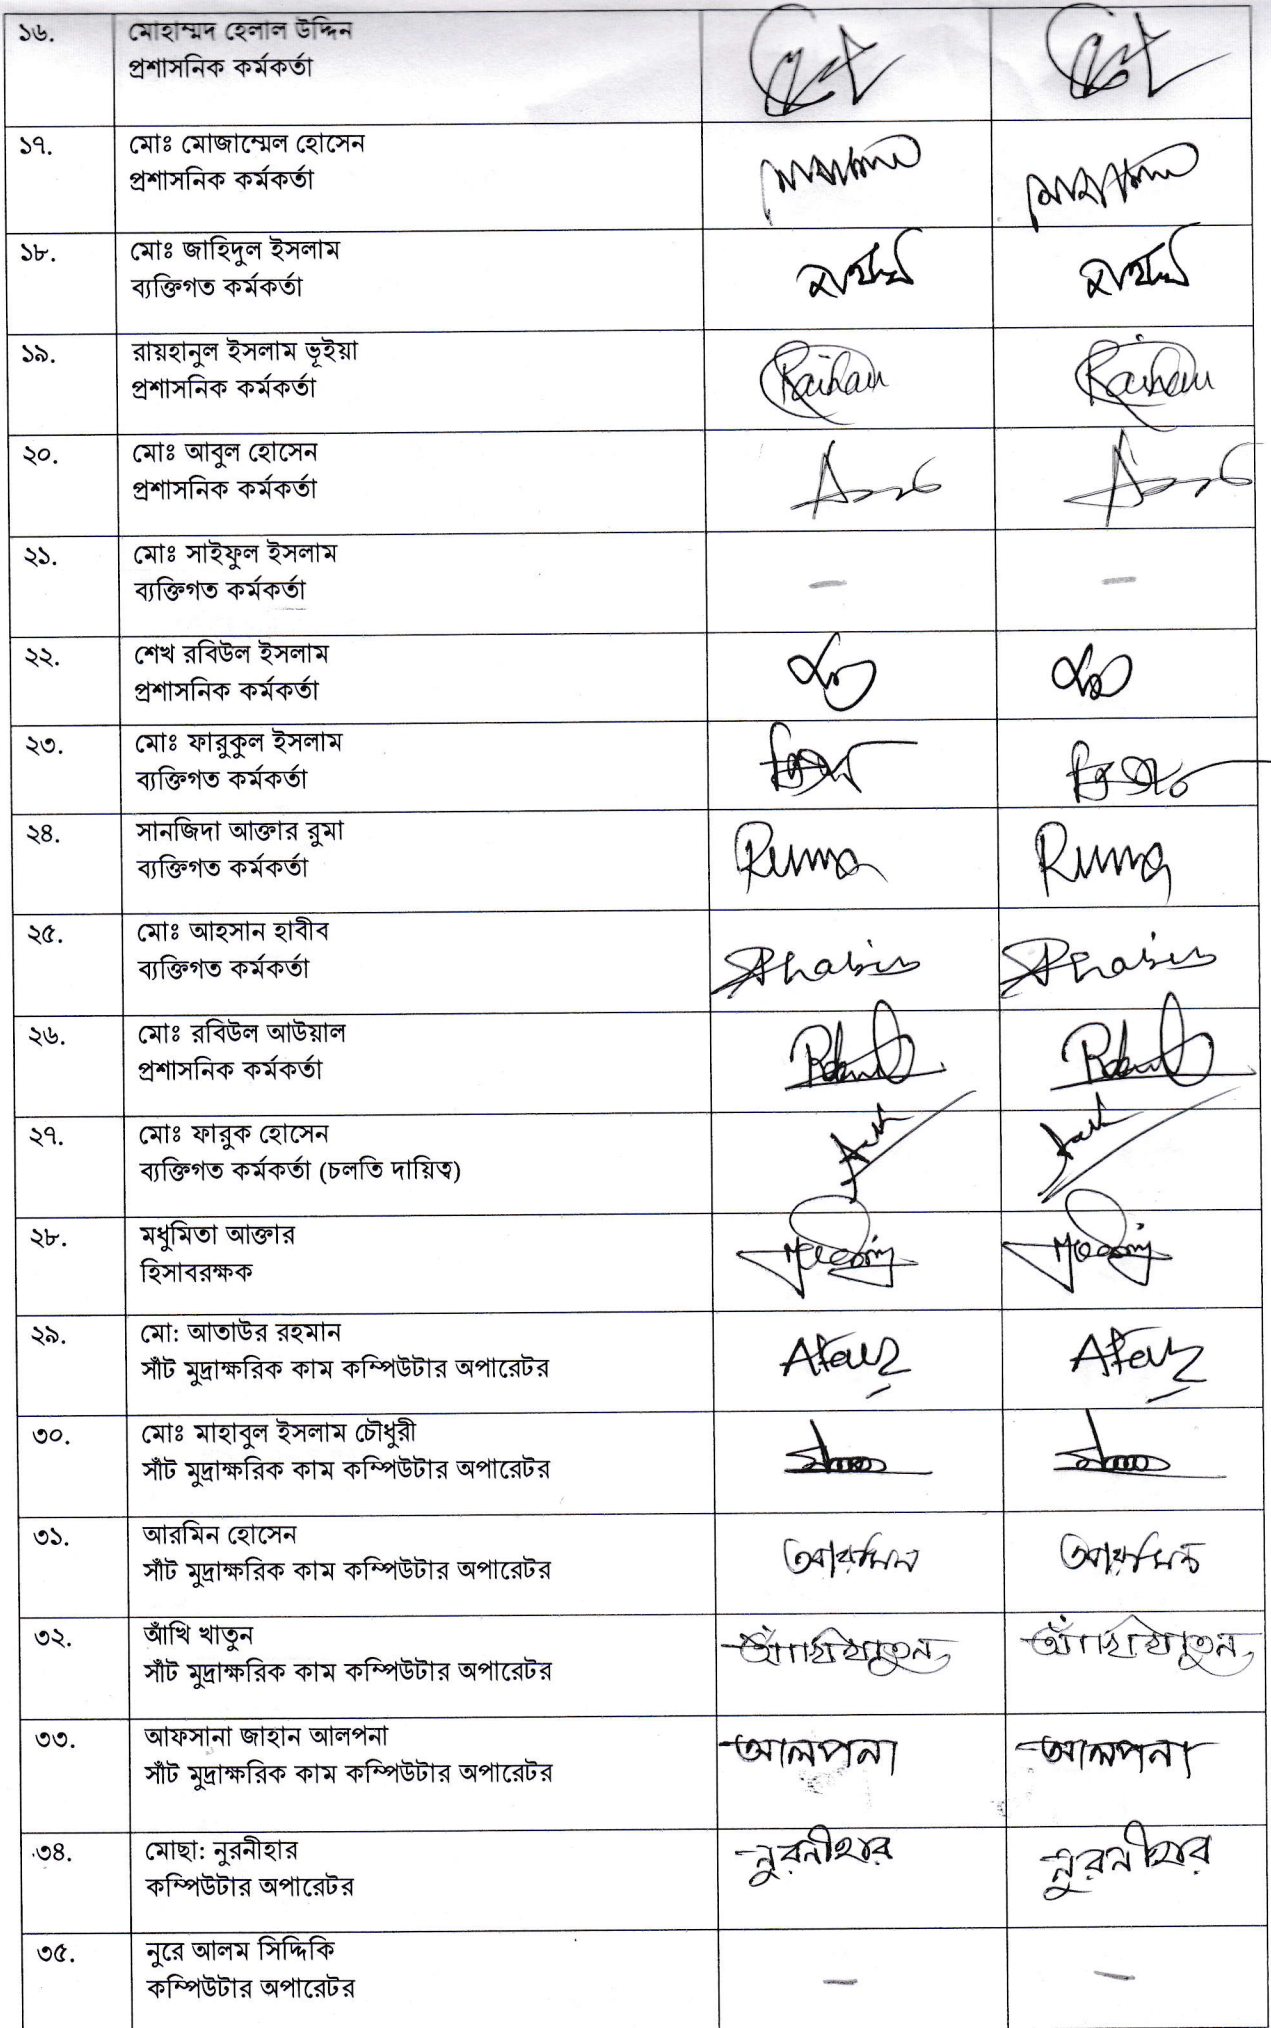 ১৬.
মোহাম্মদ হেলাল উদ্দিন
প্রশাসনিক কর্মকর্তা
১৭.
মোঃ মোজাম্মেল হোসেন
প্রশাসনিক কর্মকর্তা
১৮.
মোঃ জাহিদুল ইসলাম
ব্যক্তিগত কর্মকর্তা
১৯.
রায়হানুল ইসলাম ভূইয়া
প্রশাসনিক কর্মকর্তা
Raihan
Raihan
২০.
মোঃ আবুল হোসেন
প্রশাসনিক কর্মকর্তা
২১.
মোঃ সাইফুল ইসলাম
ব্যক্তিগত কর্মকর্তা
— —
২২.
শেখ রবিউল ইসলাম
প্রশাসনিক কর্মকর্তা
২৩.
মোঃ ফারুকুল ইসলাম
ব্যক্তিগত কর্মকর্তা
২৪.
সানজিদা আক্তার রুমা
ব্যক্তিগত কর্মকর্তা
Ruma
Ruma
২৫.
মোঃ আহসান হাবীব
ব্যক্তিগত কর্মকর্তা
২৬.
মোঃ রবিউল আউয়াল
প্রশাসনিক কর্মকর্তা
২৭.
মোঃ ফারুক হোসেন
ব্যক্তিগত কর্মকর্তা (চলতি দায়িত্ব)
২৮.
মধুমিতা আক্তার
হিসাবরক্ষক
২৯.
মো: আতাউর রহমান
সাঁট মুদ্রাক্ষরিক কাম কম্পিউটার অপারেটর
৩০.
মোঃ মাহাবুল ইসলাম চৌধুরী
সাঁট মুদ্রাক্ষরিক কাম কম্পিউটার অপারেটর
৩১.
আরমিন হোসেন
সাঁট মুদ্রাক্ষরিক কাম কম্পিউটার অপারেটর
আরমিন
আরমিন
৩২.
আঁখি খাতুন
সাঁট মুদ্রাক্ষরিক কাম কম্পিউটার অপারেটর
আঁখি খাতুন
আঁখি খাতুন
৩৩.
আফসানা জাহান আলপনা
সাঁট মুদ্রাক্ষরিক কাম কম্পিউটার অপারেটর
আলপনা
আলপনা
৩৪.
মোছা: নুরনীহার
কম্পিউটার অপারেটর
নুরনীহার
নুরনীহার
৩৫.
নুরে আলম সিদ্দিকি
কম্পিউটার অপারেটর
— —